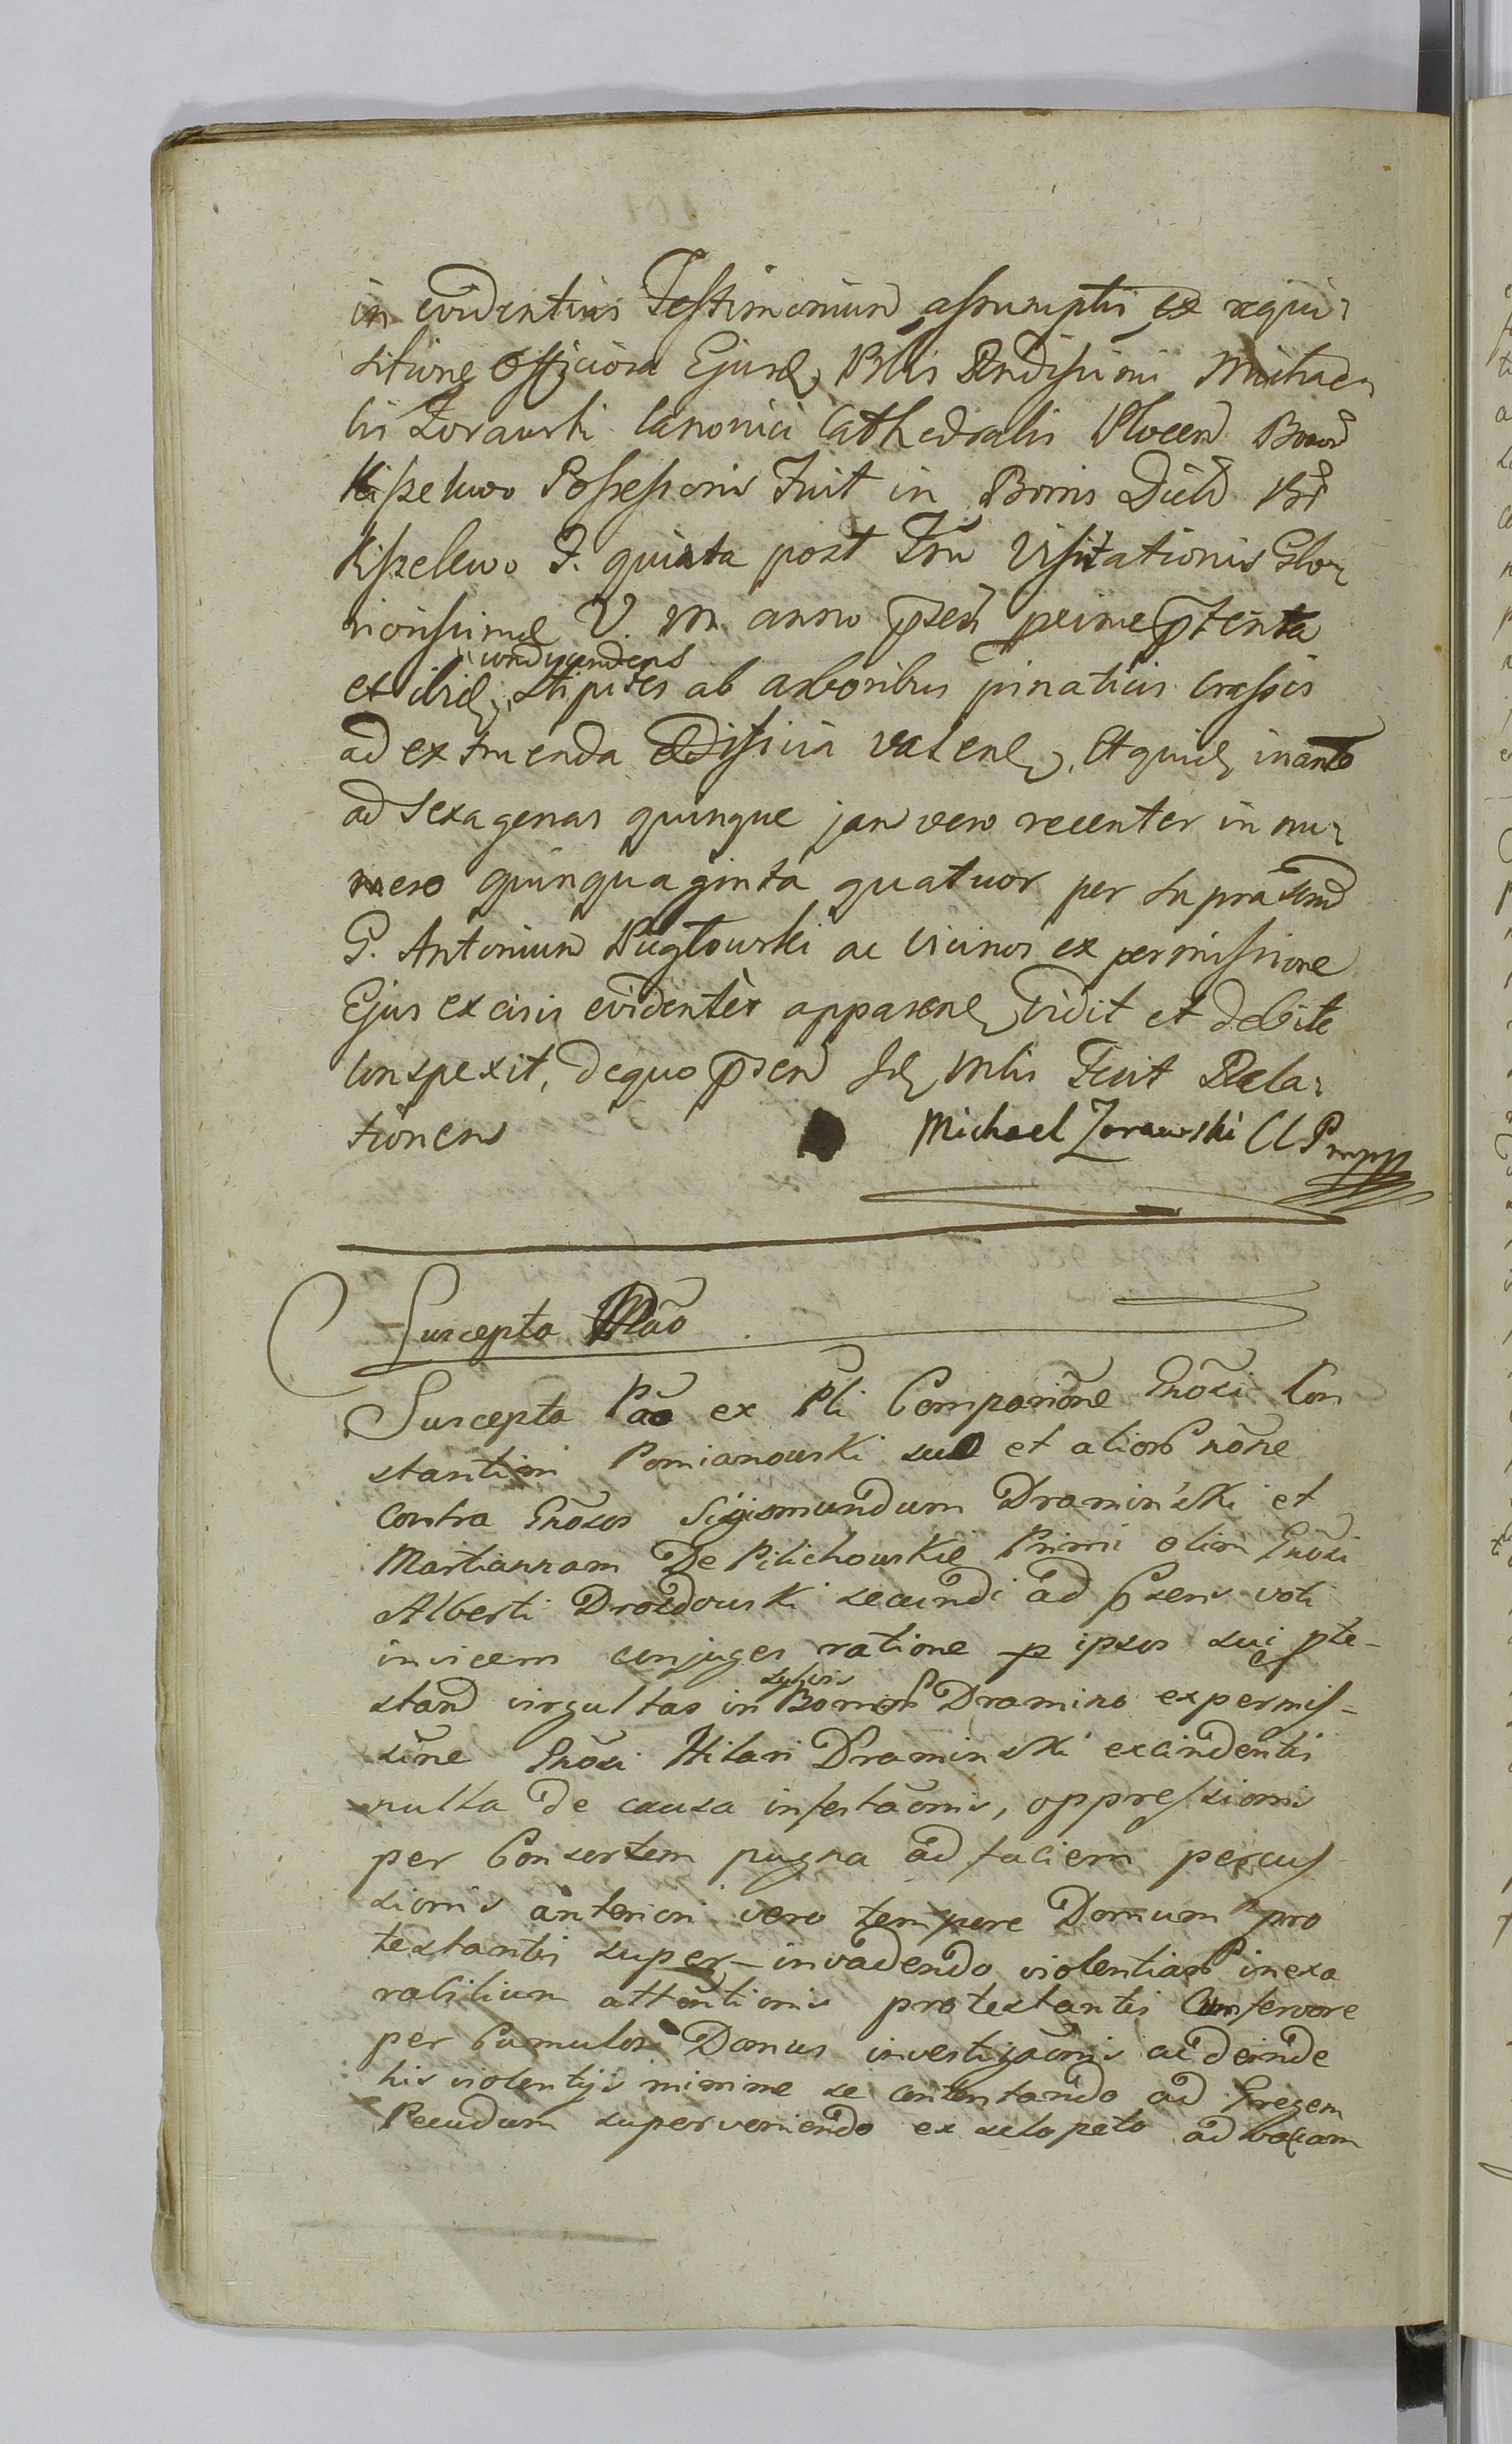 in evidentius Testimonium assumptis ex requi-
sitione officiosa Ejusd Rndissimi Michae-
lis Zorawski Canonici Cathedralis Plocen Bonor
Kiszelewo Possessoris Fuit in Bonis Dictis
Kiszelewo F. quinta post Ftm Visitationis Glo-
riosissimae V. M. anno psen
et ibid conducendens stipites ab arboribus pinaticis crassis
ad extruenda Edificia valen, et quid inante
ad sexagenas quinque jam vero recenter in nu-
mero quinquaginta quatuor per supra
G. Antonium ac vicinos ex permissione
Ejus excisis evidenter apparen, vidit et debite
Conspexit, de quo psen Fecit Rela-
tionem
Michael Zorawski CCP mpp
Suscepta Pťao
Suscepta Pťao ex Pli Comparitione Gnosi Con
stantini Pomianowski suo et alior none
Contra Gnosos Sigismundum Dramiński et
Martiannam De Pilichowskie Primi olim Gnosi
Alberti Drozdowski secundi ad psens voti
invicem conjuges ratione p ipsos sui pte-
stan virgultas in sylvis Bonor Dramino ex permis-
sine Gnosi Hilari Draminski excindentis
nulla de causa infestaonis, oppressionis
per Consortem pugna ad faciem percus
sionis anteriori vero tempore Domum pro
testantis super-invadendo violentiar inexo
rabilium attentionis protestantis Cum fervore
per Cumulos Domus investigaonis ac deinde
his violentijs minime se contentando ad Gregem
Pecudum superveniendo ex sclopeto ad vaccam